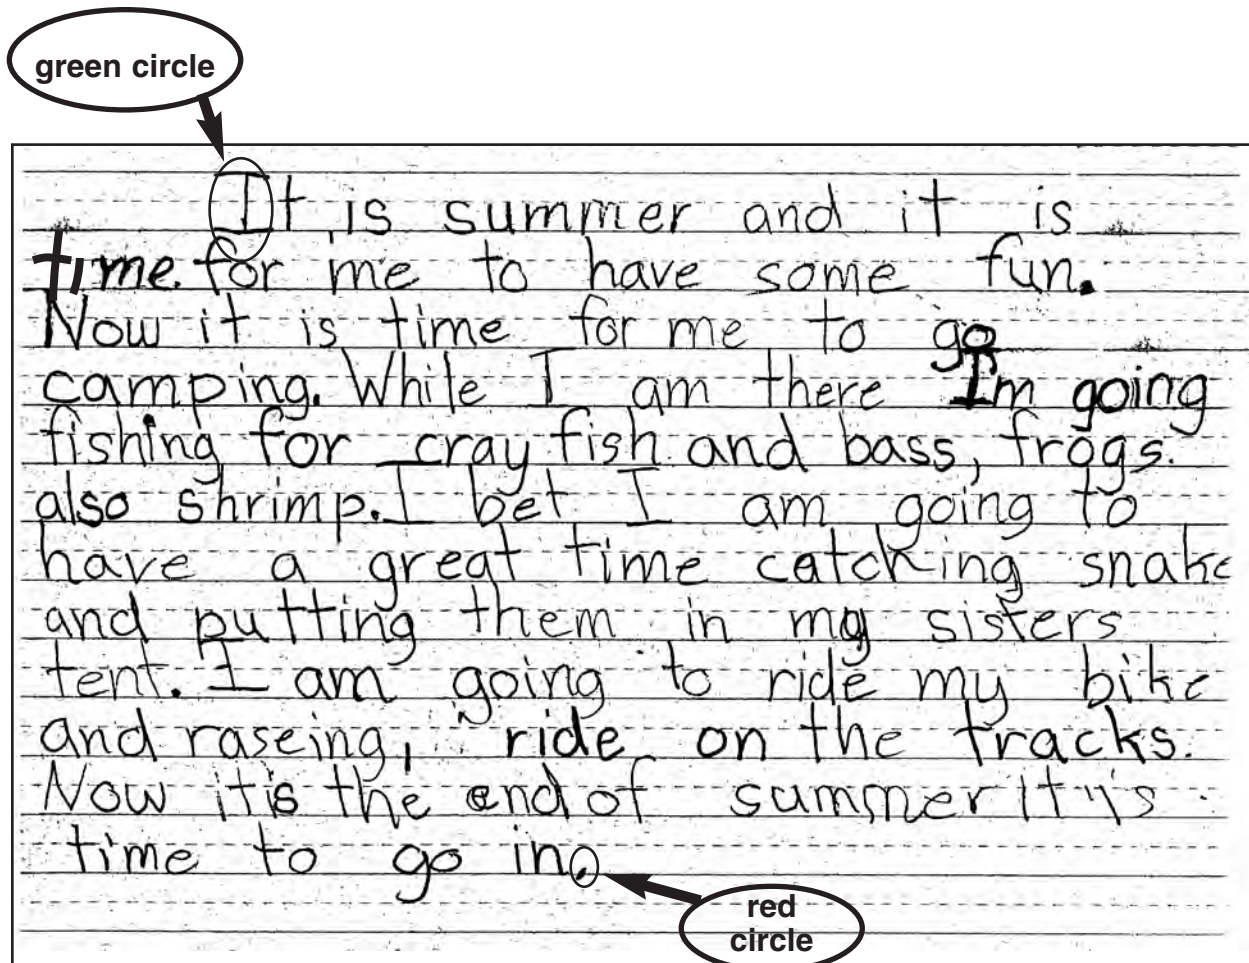 green circle
It is summer and it is
time for me to have some fun.
Now it is time for me to go
camping. While I am there Im going
fishing for cray fish and bass, frogs.
also shrimp. I bet I am going to
have a great time catching snake
and putting them in my sisters
tent. I am going to ride my bike
and raseing, ride on the tracks.
Now it is the end of summer It is
time to go in.
red
circle